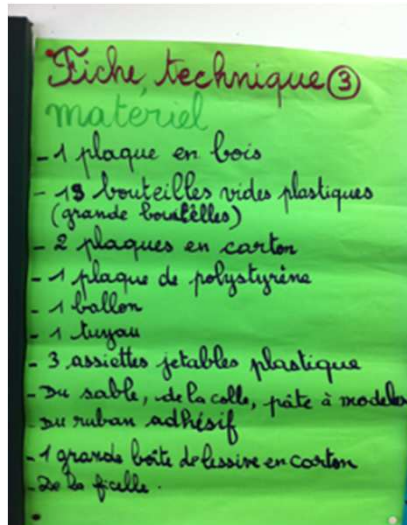 Fiche technique ③
matériel
- 1 plaque en bois
- 13 bouteilles vides plastiques
(grande bouteilles)
- 2 plaques en carton
- 1 plaque de polystyrène
- 1 ballon
- 1 tuyau
- 3 assiettes jetables plastique
- Du sable, de la colle, pâte à modeler
- Du ruban adhésif
- 1 grande boîte de lessive en carton
- De la ficelle.